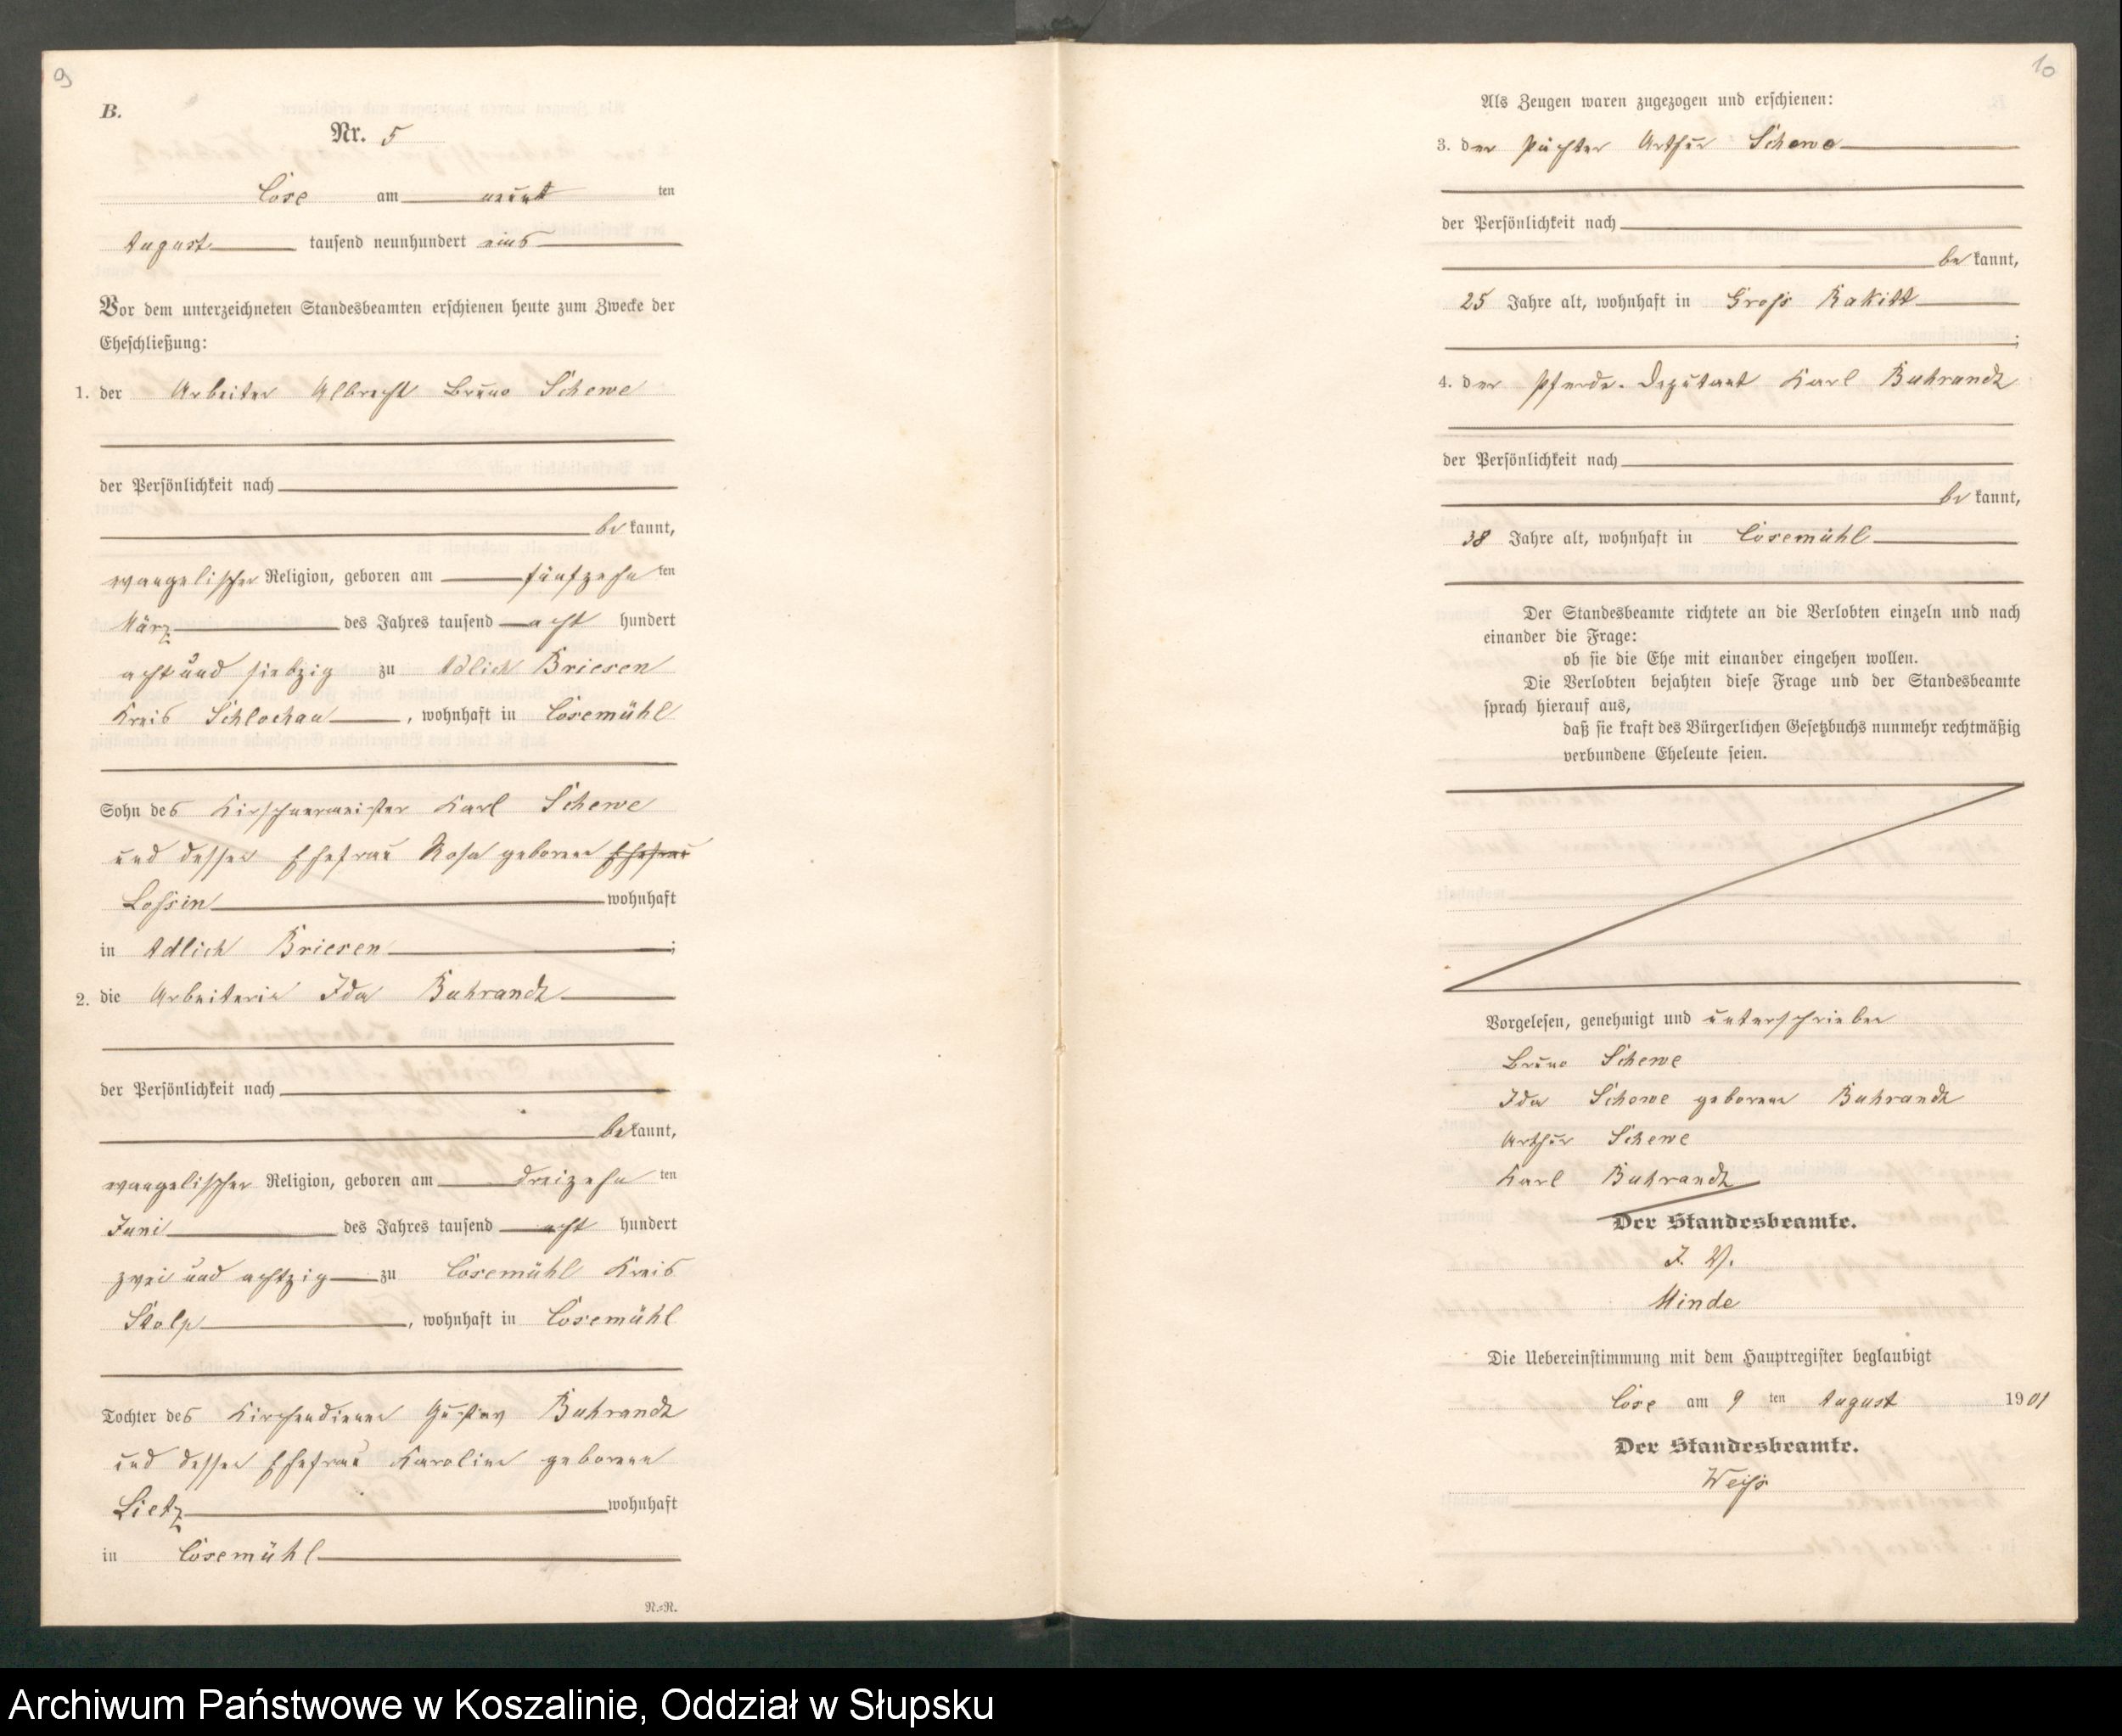 9
B.
Nr. 5
Cose am neunt ten
August tausend neunhundert eins
Vor dem unterzeichneten Standesbeamten erschienen heute zum Zwecke der
Eheschließung:
1. der Arbeiter Albrecht Bruno Schewe
der Persönlichkeit nach
be kannt,
evangelischer Religion, geboren am fünfzehn ten
März des Jahres tausend acht hundert
acht und siebzig zu Adlich Briesen
Kreis Schlochau, wohnhaft in Cosemühl
Sohn des Kirschnermeister Karl Schewe
und dessen Ehefrau Rosa geborene Ehefrau
Lossin wohnhaft
in Adlich Briesen;
2. die Arbeiterin Ida Buhrandt
der Persönlichkeit nach
be kannt,
evangelischer Religion, geboren am dreizehn ten
Juni des Jahres tausend acht hundert
zwei und achtzig zu Cosemühl Kreis
Stolp, wohnhaft in Cosemühl
Tochter des Kirchendiener Gustav Buhrandt
und dessen Ehefrau Karoline geborene
Lietz wohnhaft
in Cosemühl
N.=R.
10
Als Zeugen waren zugezogen und erschienen:
3. der Pächter Arthur Schewe
der Persönlichkeit nach
be kannt,
25 Jahre alt, wohnhaft in Gross Rakitt
;
4. der Pferde-Deputant Karl Buhrandt
der Persönlichkeit nach
be kannt,
38 Jahre alt, wohnhaft in Cosemühl
Der Standesbeamte richtete an die Verlobten einzeln und nach
einander die Frage:
ob sie die Ehe mit einander eingehen wollen.
Die Verlobten bejahten diese Frage und der Standesbeamte
sprach hierauf aus,
daß sie kraft des Bürgerlichen Gesetzbuchs nunmehr rechtmäßig
verbundene Eheleute seien.
Vorgelesen, genehmigt und unterschrieben
Bruno Schewe
Ida Schewe geborene Buhrandt
Arthur Schewe
Karl Buhrandt
Der Standesbeamte.
J. V.
Minde
Die Uebereinstimmung mit dem Hauptregister beglaubigt
Cose am 9 ten August 1901
Der Standesbeamte.
Weiss
Archiwum Państwowe w Koszalinie, Oddział w Słupsku